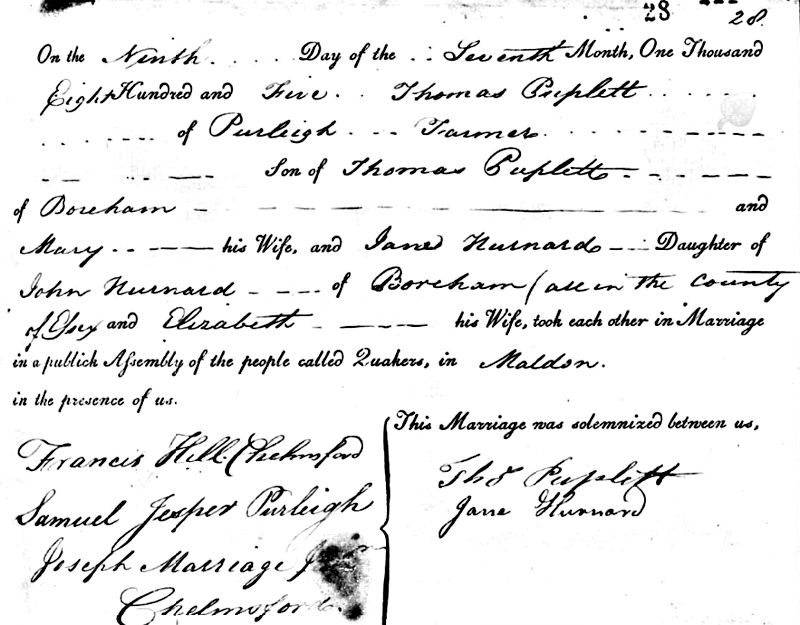 28 28.
On the Ninth. . . . . Day of the . . Seventh Month, One Thousand
Eight Hundred and Five. . Thomas Puplett . . . . . . .
. . . . . . of Purleigh . . . Farmer. . . . . . . . . . . .
Son of Thomas Puplett
of Boreham and
Mary. . . his Wife, and Jane Hurnard Daughter of
John Hurnard of Boreham (all in the County
of Essex and Elizabeth his Wife, took each other in Marriage
in a publick Assembly of the people called Quakers, in Maldon.
in the presence of us.
This Marriage was solemnized between us,
Francis Hill. Chelmsford
Samuel Jesper Purleigh
Joseph Marriage
Chelmsford.
Thos Puplett
Jane Hurnard